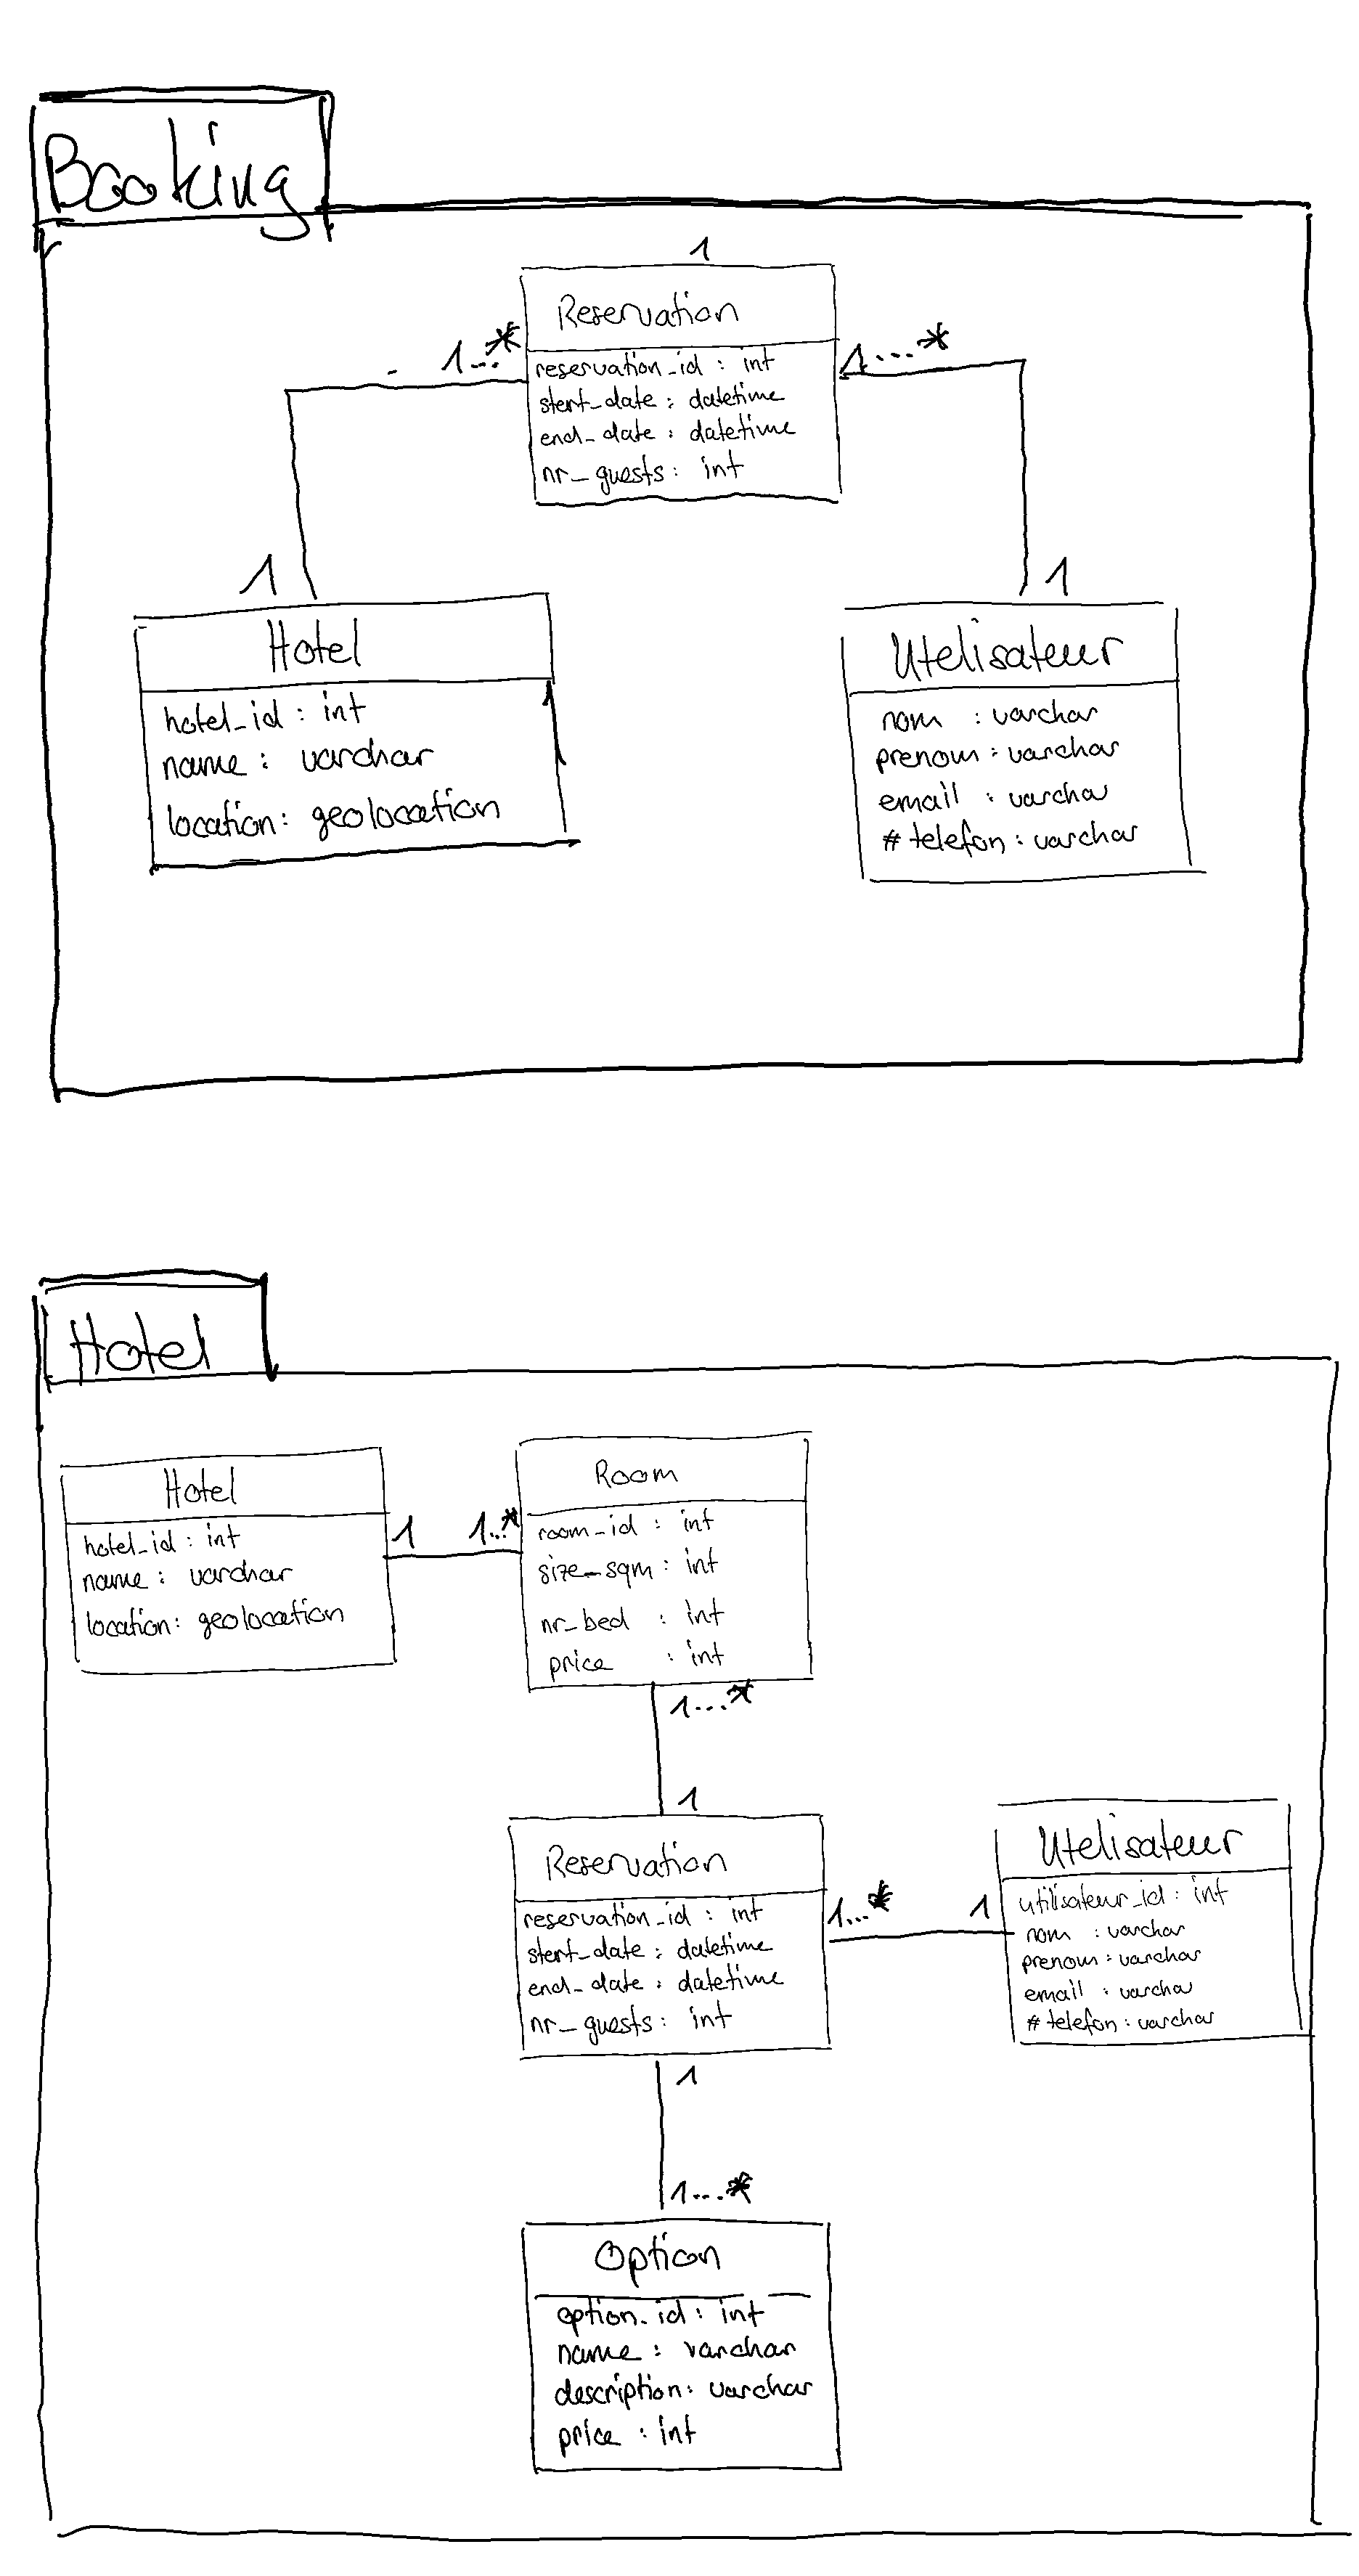 Booking
1
Reservation
1...*
1....*
reservation_id : int
stert_date : datetime
end_date : datetime
nr_guests : int
1
1
Hotel
hotel_id : int
name : varchar
location : geolocation
Utelisateur
nom : varchar
prenom : varchar
email : varchar
# telefon : varchar
Hotel
Hotel
hotel_id : int
name : varchar
location : geolocation
1
1...*
Room
room_id : int
size_sqm : int
nr_bed : int
price : int
1....*
1
Reservation
reservation_id : int
stert_date : datetime
end_date : datetime
nr_guests : int
1...*
1
Utelisateur
utilisateur_id : int
nom : varchar
prenom : varchar
email : varchar
# telefon : varchar
1
1....*
Option
option_id : int
name : varchar
description : varchar
price : int